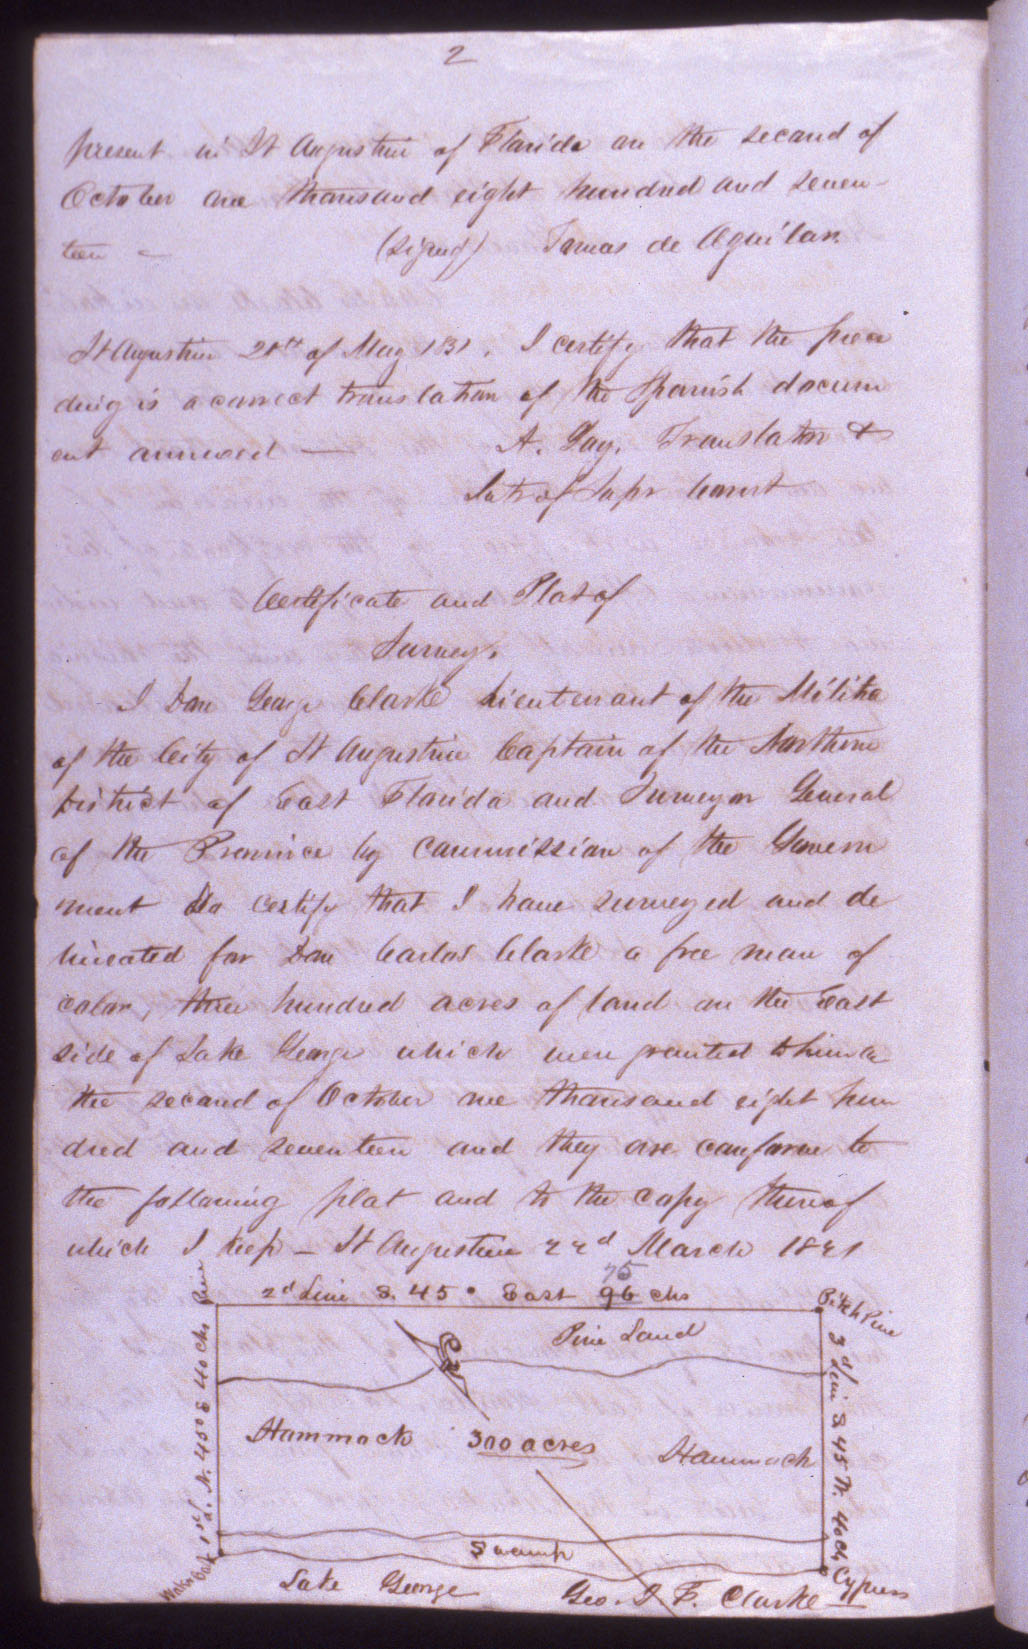 2
present in St Augustin of Florida on the second of
October one thousand eight hundred and seven-
teen — (signed) Tomas de Aguilar.
St Augustin 20th of May 1831. I certify that the prece
ding is a correct translation of the Spanish docum
ent annexed — A. Gay. Translator &
Intr of Supr Court
Certificate and Plat of
Survey.
I Don George Clarke Lieutenant of the Militia
of the City of St Augustine Captain of the Northern
District of East Florida and Surveyor General
of the Province by commission of the Govern
ment Do certify that I have surveyed and de
lineated for Don Carlos Clarke a free man of
color, three hundred acres of land on the East
side of Lake George which were granted to him on
the second of October one thousand eight hun
dred and seventeen and they are conform to
the following plat and to the copy thereof
which I keep — St Augustine 22d March 1821
75
2d Line S. 45° East 96 chs
Pine
Pitch Pine
1st L. N. 45° E 40 chs
Pine Land
3d Line S 45 W. 40 ch
Hammock 300 acres Hammock
Swamp
Water Oak
Cypress
Lake George Geo. J. F. Clarke